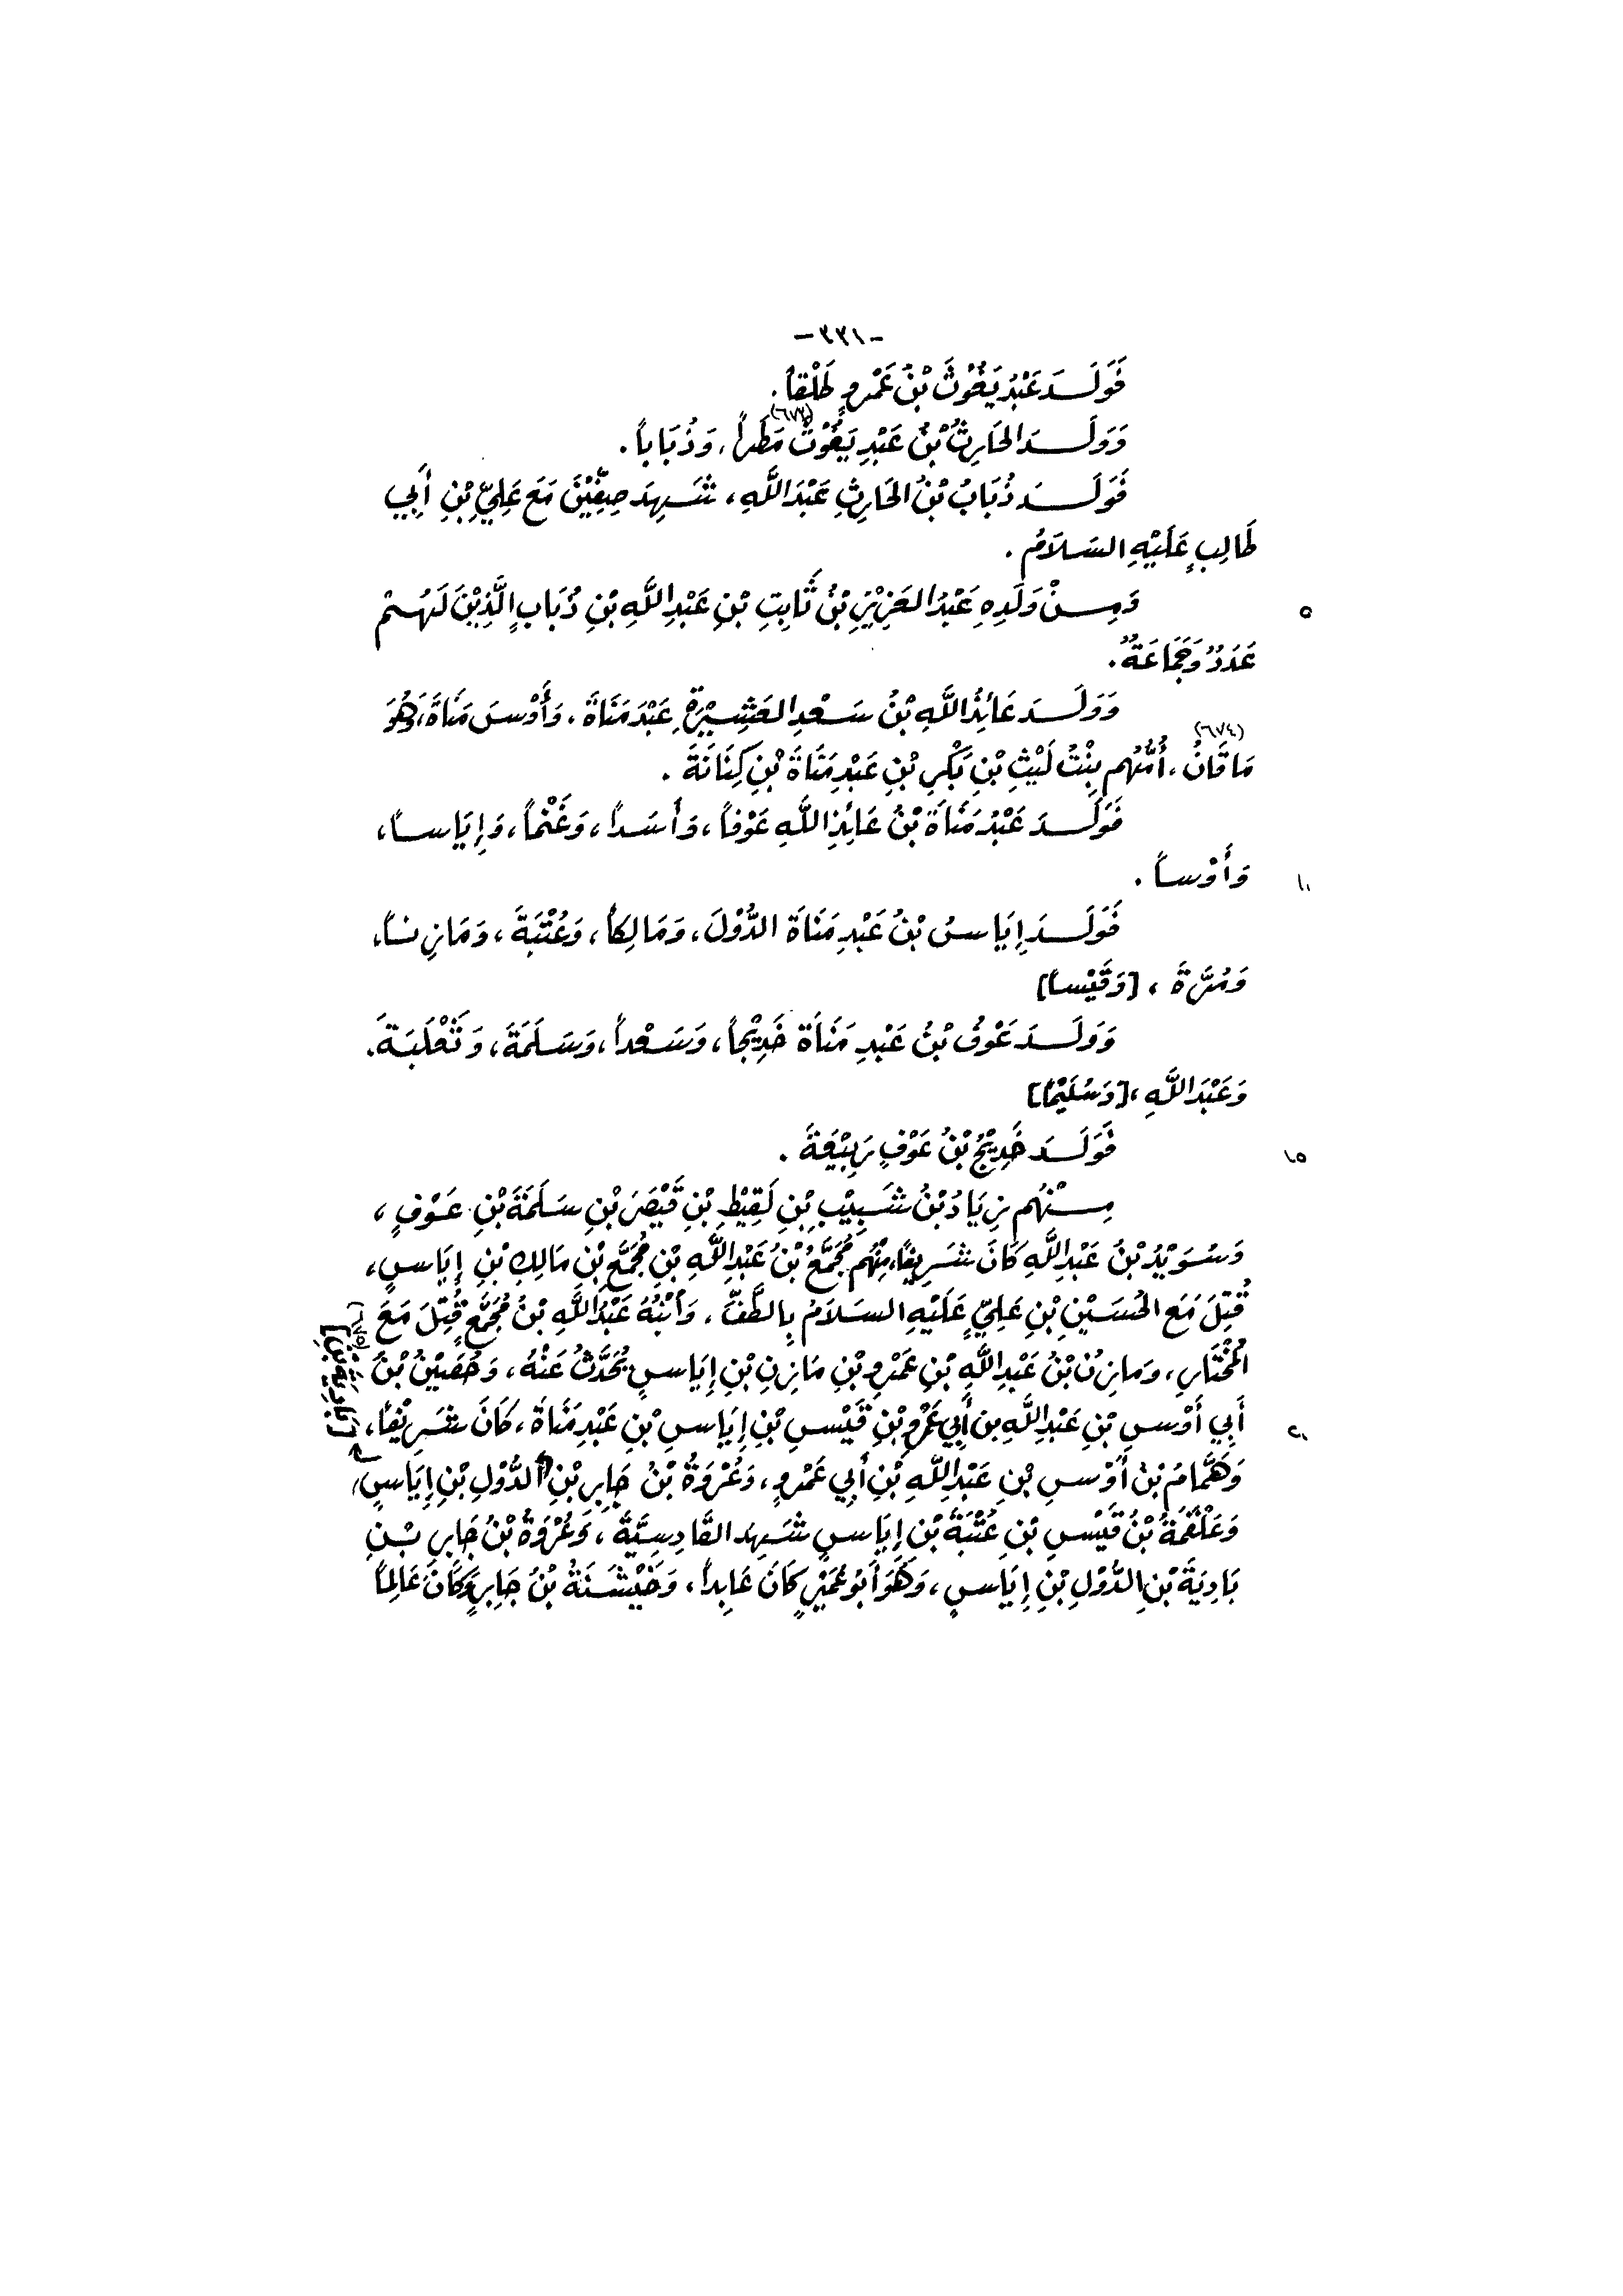 -٣٣١-
فَوَلَدَ عَبْدُ يَغُوْثَ بْنُ عَمْرٍو طَلْقاً.
وَوَلَدَ الحَارِثُ بْنُ عَبْدِ يَغُوْثَ (٦٧٣) مَطَراً، وَذُبَاباً.
فَوَلَدَ ذُبَابُ بْنُ الحَارِثِ عَبْدَ اللَّهِ، شَهِدَ صِفِّيْنَ مَعَ عَلِيِّ بْنِ أَبِي
طَالِبٍ عَلَيْهِ السَلَامُ.
٥ وَمِنْ وَلَدِهِ عَبْدُ العَزِيْزِ بْنُ ثَابِتِ بْنِ عَبْدِ اللَّهِ بْنِ ذُبَابٍ الَّذِيْنَ لَهُمْ
عَدَدٌ وَجَمَاعَةٌ.
وَوَلَدَ عَائِذُ اللَّهِ بْنُ سَعْدِ العَشِيْرَةِ عَبْدَ مَنَاةَ، وَأَوْسَ مَنَاةَ، وَهُوَ
مَاقَانُ (٦٧٤)، أُمُّهُم بِنْتُ لَيْثِ بْنِ بَكْرِ بْنِ عَبْدِ مَنَاةَ بْنِ كِنَانَةَ.
فَوَلَدَ عَبْدُ مَنَاةَ بْنُ عَائِذِ اللَّهِ عَوْفاً، وَأَسَداً، وَغَنْماً، وَإِيَاساً،
١٠ وَأَوْساً.
فَوَلَدَ إِيَاسُ بْنُ عَبْدِ مَنَاةَ الدُّوْلَ، وَمَالِكاً، وَعُتْبَةَ، وَمَازِناً،
وَمُرَّةَ، [وَقَيْساً]
وَوَلَدَ عَوْفُ بْنُ عَبْدِ مَنَاةَ خَدِيْجاً، وَسَعْداً، وَسَلَمَةَ، وَثَعْلَبَةَ.
وَعَبْدَ اللَّهِ، [وَسُلَيْماً]
١٥ فَوَلَدَ خَدِيْجُ بْنُ عَوْفٍ رَبِيْعَةَ.
مِنْهُم زِيَادُ بْنُ شَبِيْبِ بْنِ لَقِيْطِ بْنِ قَيْصَرَ بْنِ سَلَمَةَ بْنِ عَوْفٍ،
وَسُوَيْدُ بْنُ عَبْدِ اللَّهِ كَانَ شَرِيفاً، مِنْهُم مُجَمَّعُ بْنُ عَبْدِ اللَّهِ بْنِ مُجَمَّعِ بْنِ مَالِكِ بْنِ إِيَاسٍ،
قُتِلَ مَعَ الحُسَيْنِ بْنِ عَلِيٍّ عَلَيْهِ السَلَامُ بِالطَّفِّ، وَابْنُهُ عَبْدُ اللَّهِ بْنُ مُجَمَّعٍ قُتِلَ مَعَ
المُخْتَارِ، وَمَازِنُ بْنُ عَبْدِ اللَّهِ بْنِ عَمْرِو بْنِ مَازِنِ بْنِ إِيَاسٍ يُحَدَّثُ عَنْهُ، وَحُصَيْنُ بْنُ
٢٠ أَبِي أَوْسِ بْنِ عَبْدِ اللَّهِ بن أَبِي عَمْرِو بْنِ قَيْسِ بْنِ إِيَاسِ بْنِ عَبْدِ مَنَاةَ، كَانَ شَرِيْفاً،
وَهَمَّامُ بْنُ أَوْسِ بْنِ عَبْدِ اللَّهِ بْنِ أَبِي عَمْرٍو، وَعُرْوَةُ بْنُ جَابِرِ بْنِ الدُّوْلِ بْنِ إِيَاسٍ،
(٦٧٥) [بَادِيَةَ بْنِ]
وَعَلْقَمَةُ بْنُ قَيْسِ بْنِ عُتْبَةَ بْنِ إِيَاسٍ شَهِدَ القَادِسِيَّةَ، وَعُرْوَةُ بْنُ جَابِرِ بْنِ
بَادِيَةَ بْنِ الدُّوْلِ بْنِ إِيَاسٍ، وَهُوَ أَبُو عُمَيْرٍ كَانَ عَابِداً، وَخَيْشَنَةُ بْنُ جَابِرٍ وَكَانَ عَالِماً